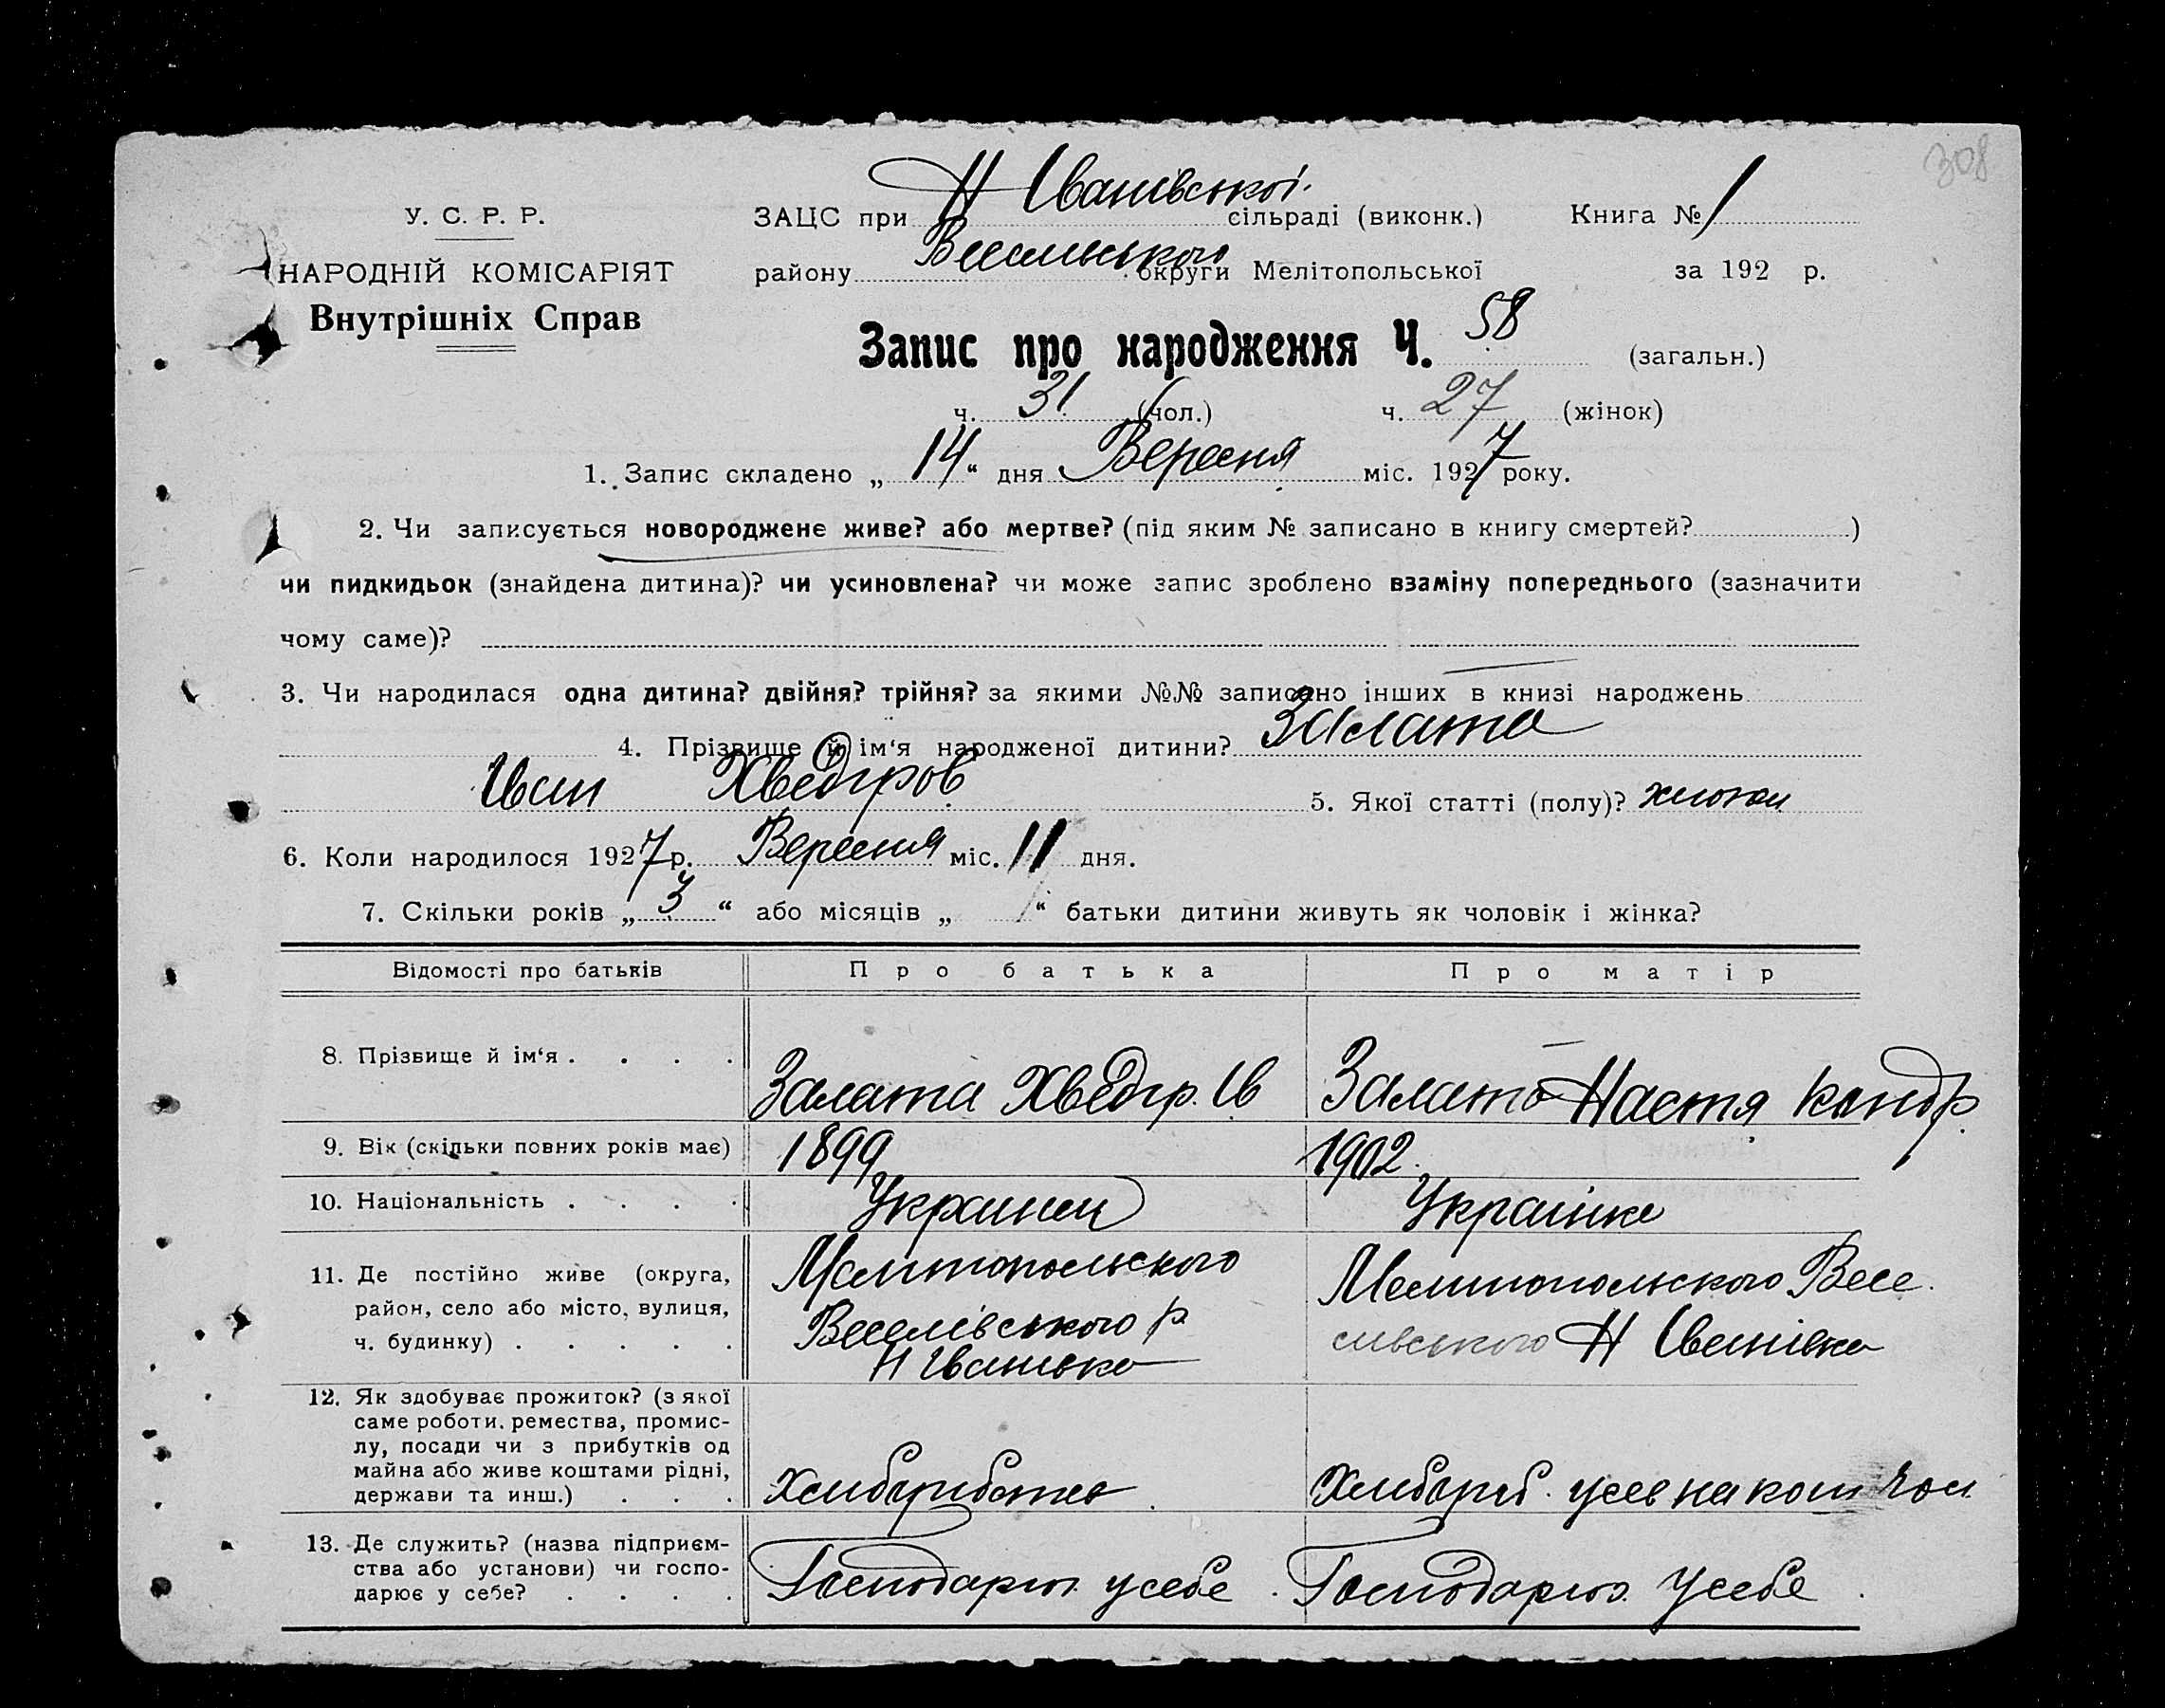 308
У. С. Р. Р.
НАРОДНІЙ КОМІСАРІЯТ
Внутрішніх Справ
ЗАЦС при Н Іванівської сільраді (виконк.) Книга № 1
району Веселівського округи Мелітопольської за 192 р.
Запис про народження Ч. 58 (загальн.)
ч. 31 (чол.) ч. 27 (жінок)
1. Запис складено „ 14 “ дня Вересня міс. 1927 року.
2. Чи записується новороджене живе? або мертве? (під яким № записано в книгу смертей? )
чи пидкидьок (знайдена дитина)? чи усиновлена? чи може запис зроблено взаміну попереднього (зазначити
чому саме)?
3. Чи народилася одна дитина? двійня? трійня? за якими №№ записано інших в книзі народжень
4. Прізвище й ім‘я народженої дитини? Залата
Іван Хведіров 5. Якої статті (полу)? хлопец
6. Коли народилося 1927 р. Вересня міс. 11 дня.
7. Скільки років „ 3 “ або місяців „ “ батьки дитини живуть як чоловік і жінка?
Відомості про батьків Про батька Про матір
8. Прізвище й ім‘я . . . . Залата Хведір. Ів Залата Настя Кондр.
9. Вік (скільки повних років має) 1899 1902.
10. Національність . . . . Украинец Українка
11. Де постійно живе (округа,
район, село або місто, вулиця,
ч. будинку) . . . . .
Мелитопольского
Веселівського р
Н Іванівка
Мелитопольского Весе
лівського Н Іванівка
12. Як здобуває прожиток? (з якої
саме роботи, ремества, промис-
лу, посади чи з прибутків од
майна або живе коштами рідні,
держави та инш.) . . .
Хлиборобство
Хлибороб. на кош чол
13. Де служить? (назва підприєм-
ства або установи) чи госпо-
дарює у себе? . . . .
Господарює усебе
Господарює усебе